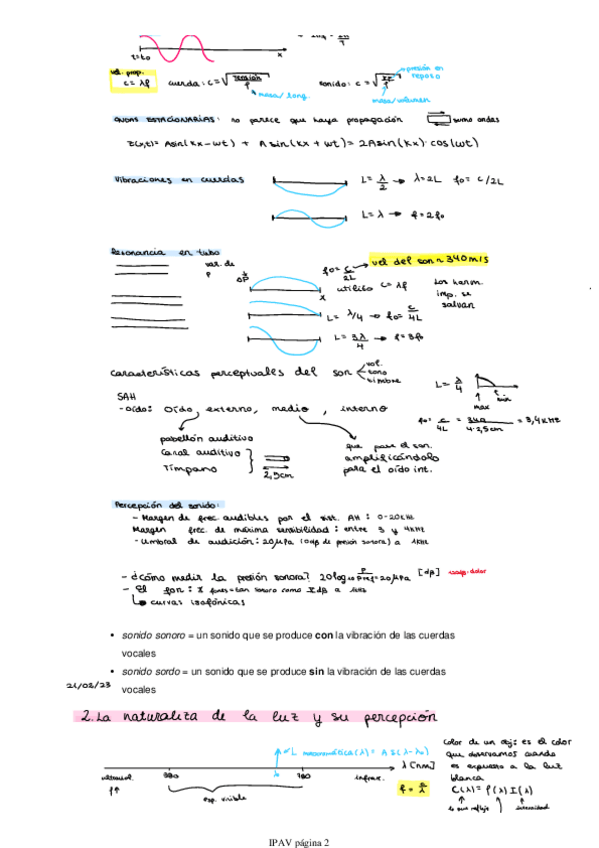 t=t0
x
vel. prop.
c = λf
cuerda: c = √ tensión / ρ
masa/long.
sonido: c = √
presión en reposo
masa/volumen
ONDAS ESTACIONARIAS: no parece que haya propagación
sumo ondas
z(x,t) = A sin(kx - wt) + A sin(kx + wt) = 2A sin(kx) · cos(wt)
Vibraciones en cuerdas
L = λ/2 → λ = 2L f0 = c/2L
L = λ → f = 2f0
Resonancia en tubo
var. de P
ΔP
x
f0 = c/2L
vel del son ≈ 340 m/s
utilizo c = λf
Los harm. imp. se salvan
L = λ/4 → f0 = c/4L
L = 3λ/4 → f = 3f0
Características perceptuales del son
vol.
tono
timbre
L = λ/4
max
min
SAH
- oído: Oído externo, medio, interno
f0 = c/4L = 340/4·2,5cm = 3,4 kHz
pabellón auditivo
Canal auditivo
Tímpano
2,5cm
que pase el son.
amplificándolo
para el oído int.
Percepción del sonido:
- Margen de frec. audibles por el sist. AH: 0-20kHz
Margen frec. de máxima sensibilidad: entre 3 y 4kHz
- Umbral de audición: 20µPa (0dB de presión sonora) a 1kHz
- ¿Cómo medir la presión sonora? 20log10 P/Pref = 20µPa [dB]
- El fon: x fones = tan sonoro como x dB a 1kHz
curvas isofónicas
• sonido sonoro = un sonido que se produce con la vibración de las cuerdas
vocales
• sonido sordo = un sonido que se produce sin la vibración de las cuerdas
21/02/23
vocales
2. La naturaleza de la luz y su percepción
L monocromática(λ) = A δ(λ-λ0)
λ [nm]
ultraviol.
380
780
infrar.
f↑
esp. visible
Color de un obj: es el color
que observamos cuando
es expuesto a la luz
blanca
C(λ) = ρ(λ) I(λ)
lo que refleja
intensidad
IPAV página 2